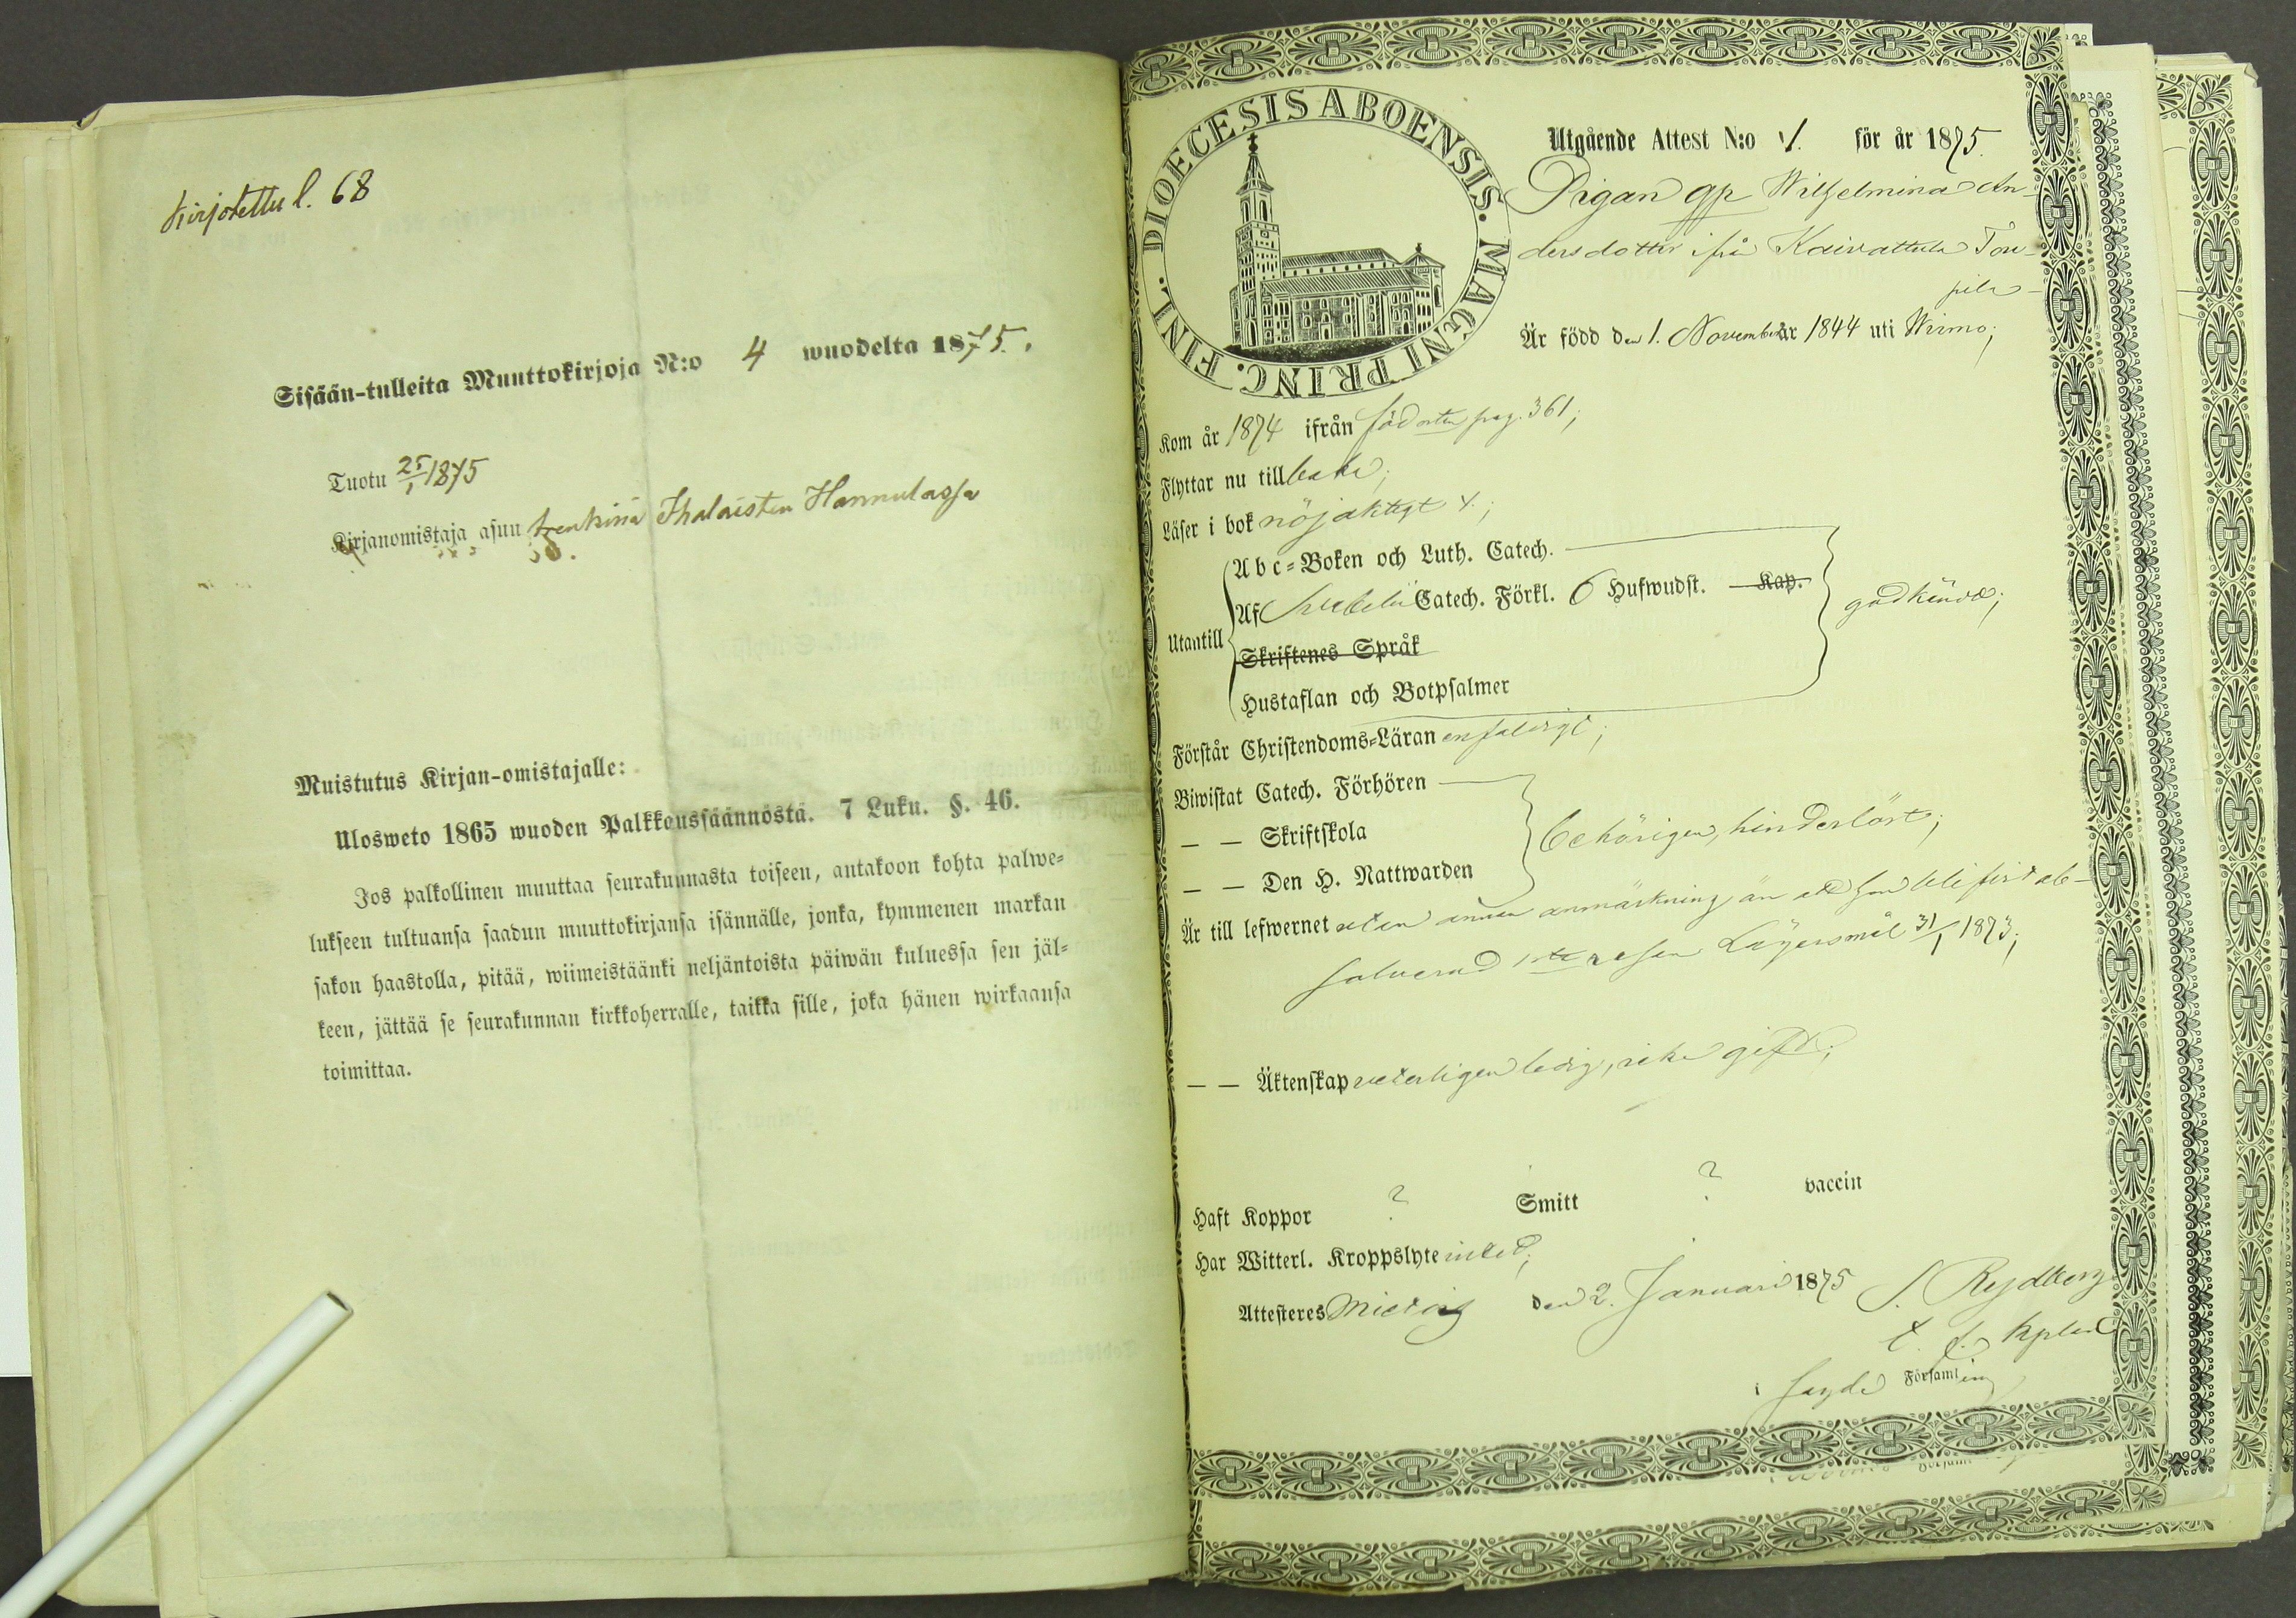 Kirjotettu l. 68
Sisään-tulleita Muuttokirjoja N:o 4 wuodelta 1875.
Tuotu 25/1 1875
Kirjanomistaja asuu renkinä Ihalaisten Hannulassa
Muistutus Kirjan-omistajalle:
Ulosweto 1865 wuoden Palkkaussäännöstä. 7 Luku. §. 46.
Jos palkollinen muuttaa seurakunnasta toiseen, antakoon kohta palwe-
lukseen tultuansa saadun muuttokirjansa isännälle, jonka, kymmenen markan
sakon haastolla, pitää, wiimeistäänki neljäntoista päiwän kuluessa sen jäl-
keen, jättää se seurakunnan kirkkoherralle, taikka sille, joka hänen wirkaansa
toimittaa.
DIOECESIS ABOENSIS. MAGNI PRINC. FINL.
Utgående Attest N:o 1. för år 1875.
Pigan gp Wilhelmina An-
dersdotter ifrån Kaivattula Tou-
pila
Är född den 1. November år 1844 uti Wirmo;
Kom år 1874 ifrån födorten pag. 361;
Flyttar nu tillbaka;
Läser i bok nöjaktigt
Utantill
Abc-Boken och Luth. Catech.
Af Svebelii Catech. Förkl. 6 Hufwudst. Kap.
Skriftenes Språk
Hustaflan och Botpsalmer
godkände;
Förstår Christendoms-Läran enfaldigt;
Biwistat Catech. Förhören
— — Skriftskola
— — Den H. Nattwarden
behörigen, hinderlöst;
Är till lefwernet utan annan anmärkning än att hon blifvit ab-
solverad 1sta resan Lägersmål 31/1 1873;
— — Äktenskap veterligen ledig, icke gift;
Haft Koppor ? Smitt ? vaccin
Har Witterl. Kroppslyte intet;
Attesteres Mietois den 2. Januari 1875 S. Rydberg
t. f. Kplan
i sagde Församling